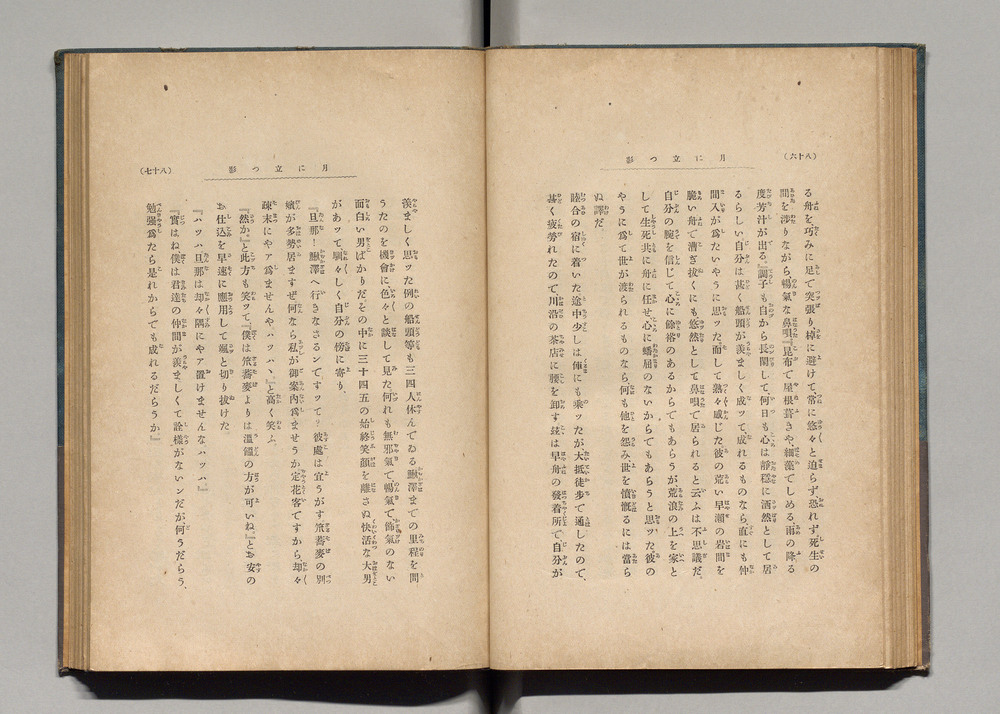 (八十六)
月に立つ影
る舟を巧みに足で突張り棹に避けて、常に悠々と迫らず恐れず、死生の
間を渉りながら暢氣な鼻唄『昆布で屋根葺きや、細藻でしめる、雨の降る
度芳汁が出る。』調子も自から長閑して何日も心は靜穩に洒然として居
るらしい自分は甚く船頭が羨ましく成ッて、成れるものなら直にも仲
間入が爲たいやうに思ッた、而して熟々感じた彼の荒い早瀬の岩間を
脆い舟で漕ぎ拔くにも悠然として鼻唄で居られると云ふは不思議だ、
自分の腕を信じて心に餘裕のあるからでもあらうが、荒浪の上を家と
して生死共に舟に任せ心に蟠屈のないからでもあらうと思ッた、彼の
やうに爲て世が渡られるものなら何も他を怨み世を憤慨るには當ら
ぬ譯だ。
睦合の宿に着いた途中少しは俥にも乘ッたが大抵徒歩で通したので、
甚く疲勞れたので川沿の茶店に腰を卸す、玆は早舟の發着所で自分が
月に立つ影
(八十七)
羨ましく思ッた例の船頭等も三四人休んでゐる鰍澤までの里程を問
うたのを機會に色々と談して見た何れも無邪氣で暢氣で、怖氣のない
面白い男ばかりだその中に三十四五の始終笑顏を離さぬ快活な大男
があッて、馴々しく自分の傍に寄り、
『旦那！鰍澤へ行きなさるンですッて？彼處は宜うがす、笊蕎麥の別
嬪が多勢居ますぜ何なら私が御案内爲ませうか定花客ですから、却々
疎末にやア爲ませんや、ハッハヽ』と高く笑ふ、
『然か。』と此方も笑ッて『僕は笊蕎麥よりは溫飩の方が可いね』とお安の
お仕込を早速に應用して颯と切り拔けた
『ハッハ旦那は却々隅にやア置けませんな、ハッハ』
『實はね僕は君達の仲間が羨ましくて詮樣がないンだが、何うだらう、
勉强爲たら是れからでも成れるだらうか』